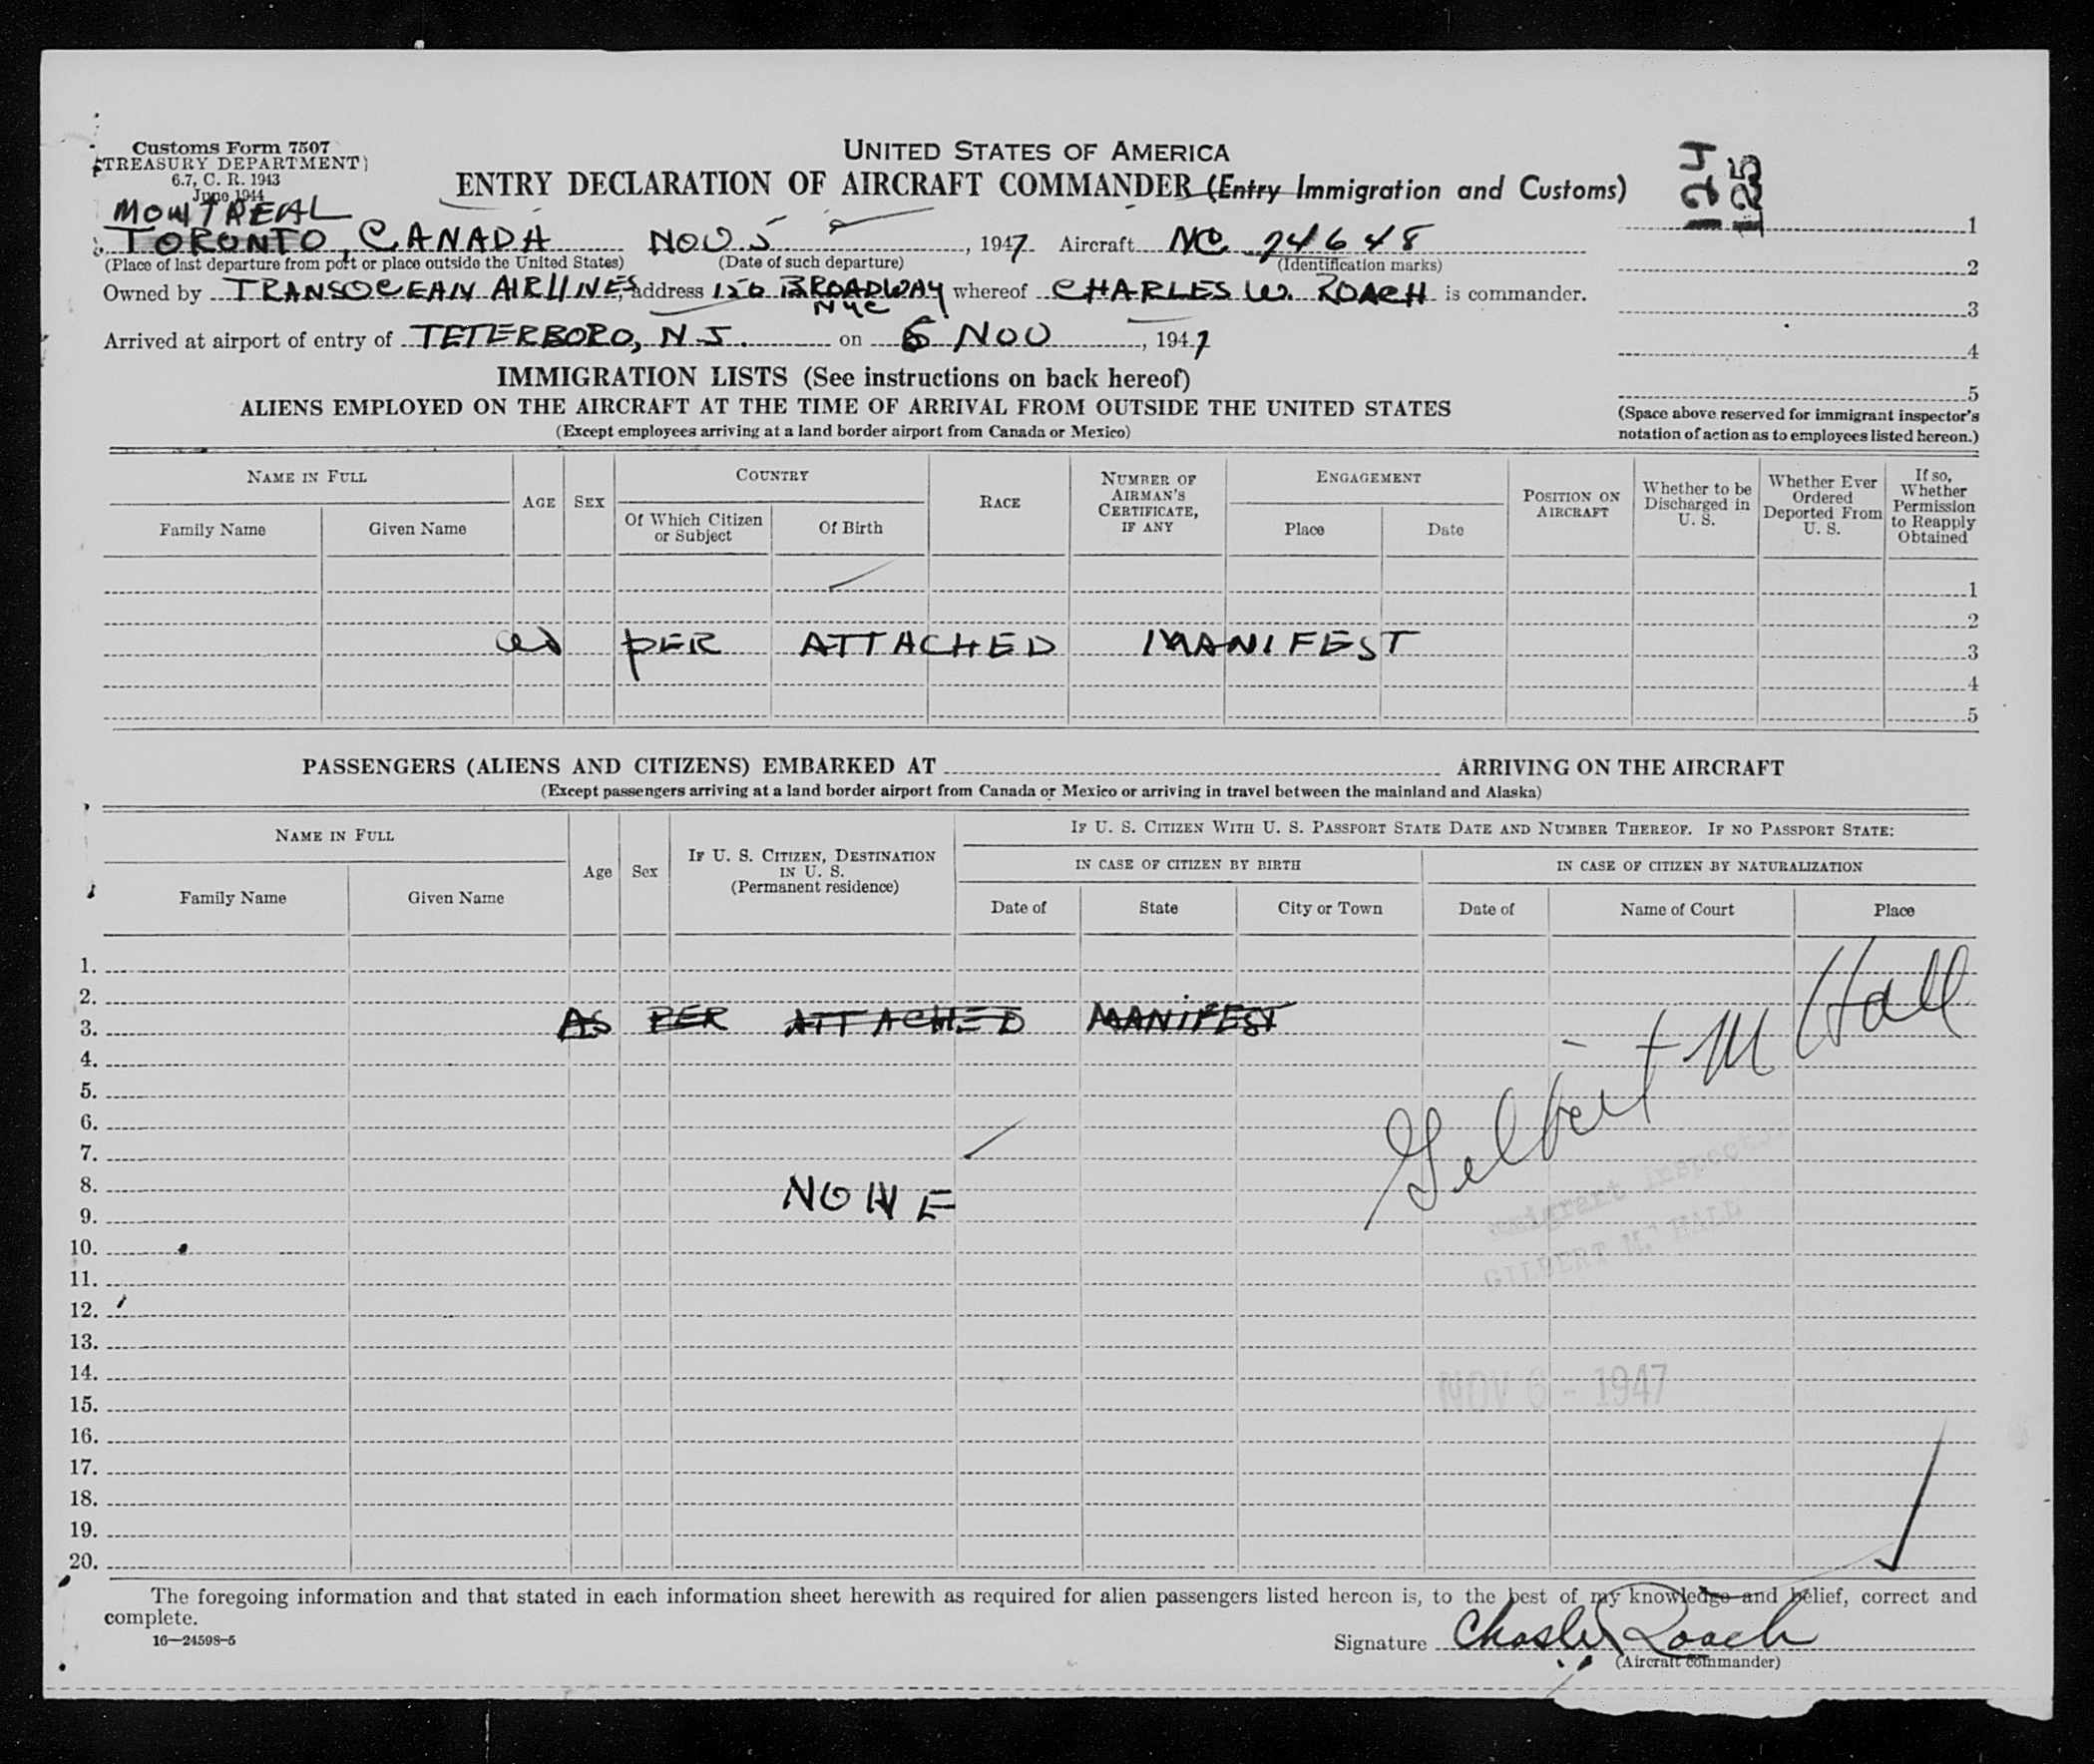 Customs Form 7507
(TREASURY DEPARTMENT)
6.7, C. R. 1943
June 1944
UNITED STATES OF AMERICA
ENTRY DECLARATION OF AIRCRAFT COMMANDER (Entry Immigration and Customs)
124
125
MONTREAL
TORONTO, CANADA NOV 5, 1947 Aircraft NC 74648
(Place of last departure from port or place outside the United States) (Date of such departure) (Identification marks)
Owned by TRANSOCEAN AIRLINES, address 150 BROADWAY whereof CHARLES W. ROACH is commander.
NYC
Arrived at airport of entry of TETERBORO, N.J. on 6 NOV, 1947
1
2
3
4
5
(Space above reserved for immigrant inspector's
notation of action as to employees listed hereon.)
IMMIGRATION LISTS (See instructions on back hereof)
ALIENS EMPLOYED ON THE AIRCRAFT AT THE TIME OF ARRIVAL FROM OUTSIDE THE UNITED STATES
(Except employees arriving at a land border airport from Canada or Mexico)
NAME IN FULL
Family Name
Given Name
AGE
SEX
COUNTRY
Of Which Citizen
or Subject
Of Birth
RACE
NUMBER OF
AIRMAN'S
CERTIFICATE,
IF ANY
ENGAGEMENT
Place
Date
POSITION ON
AIRCRAFT
Whether to be
Discharged in
U. S.
Whether Ever
Ordered
Deported From
U. S.
If so,
Whether
Permission
to Reapply
Obtained
1
2
as PER ATTACHED MANIFEST 3
4
5
PASSENGERS (ALIENS AND CITIZENS) EMBARKED AT ARRIVING ON THE AIRCRAFT
(Except passengers arriving at a land border airport from Canada or Mexico or arriving in travel between the mainland and Alaska)
NAME IN FULL
Family Name
Given Name
Age
Sex
IF U. S. CITIZEN, DESTINATION
IN U. S.
(Permanent residence)
IF U. S. CITIZEN WITH U. S. PASSPORT STATE DATE AND NUMBER THEREOF. IF NO PASSPORT STATE:
IN CASE OF CITIZEN BY BIRTH
Date of
State
City or Town
IN CASE OF CITIZEN BY NATURALIZATION
Date of
Name of Court
Place
1.
2.
3. AS PER ATTACHED MANIFEST
4.
5.
6.
7.
Gilbert M Hall
8. NONE
9.
Immigrant Inspector
GILBERT M. HALL
10.
11.
12.
13.
14.
NOV 6 - 1947
15.
16.
17.
18.
19.
20.
The foregoing information and that stated in each information sheet herewith as required for alien passengers listed hereon is, to the best of my knowledge and belief, correct and
complete.
16—24598-5
Signature Charles Roach
(Aircraft commander)